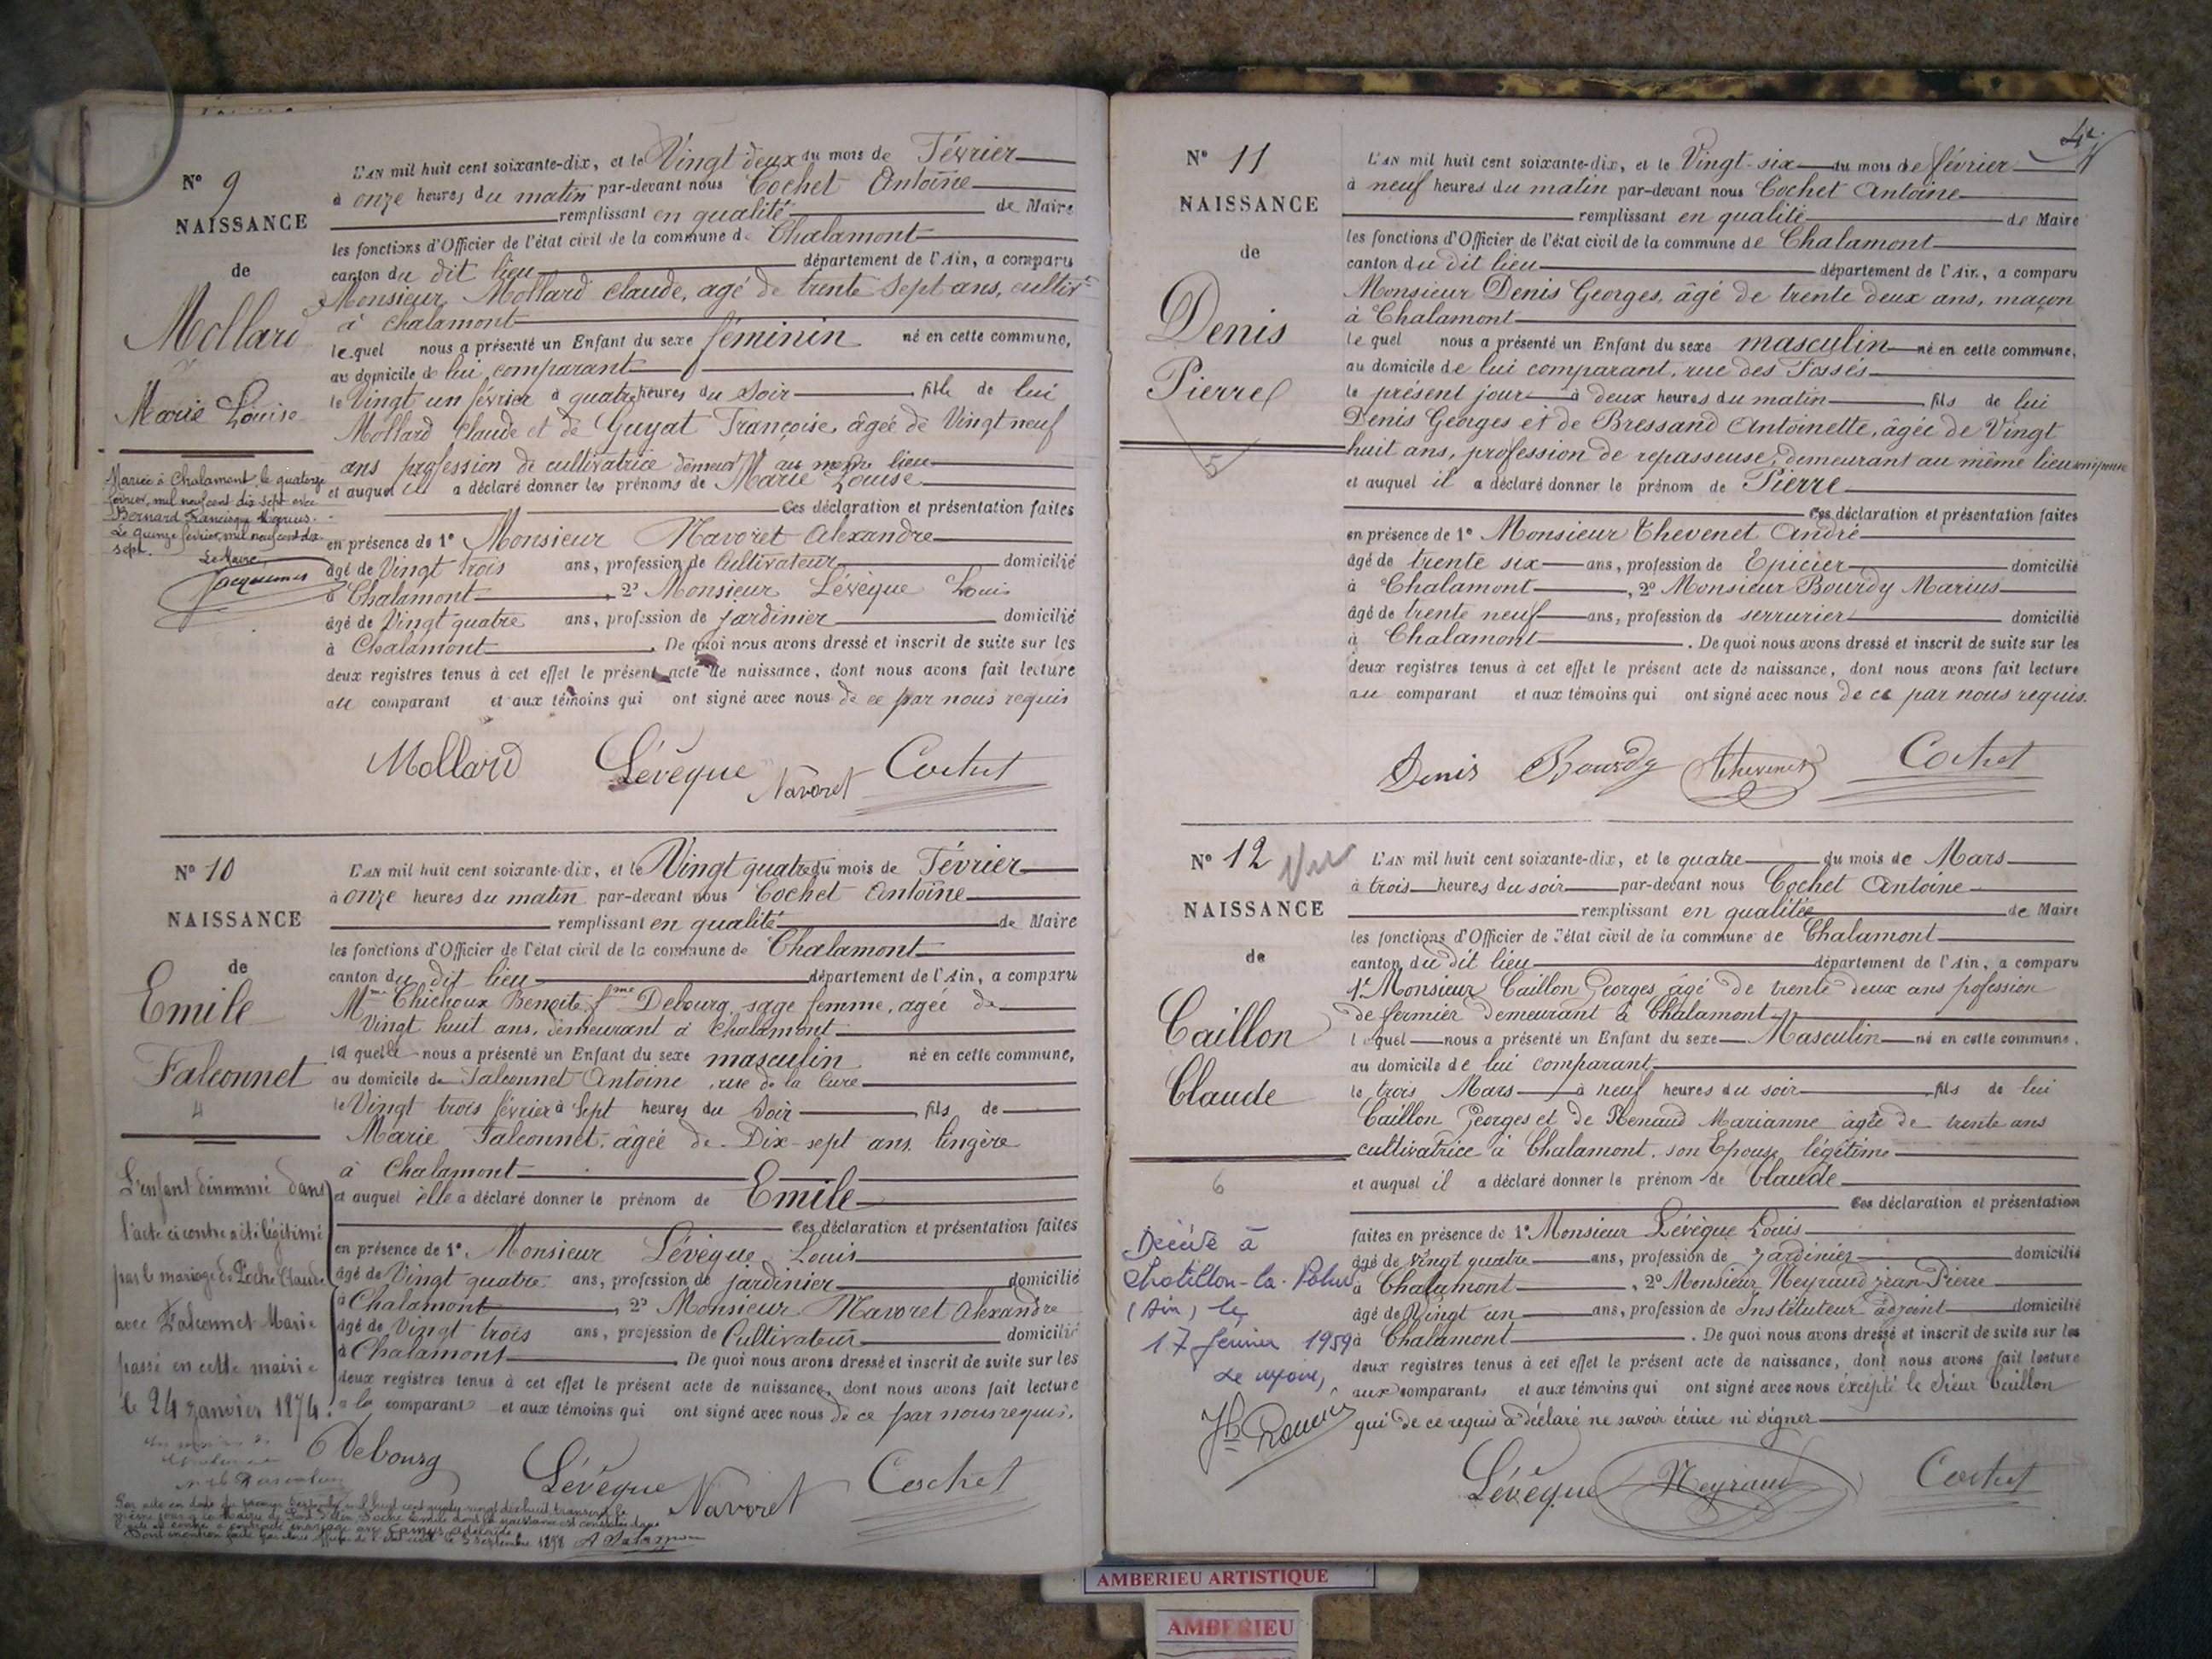 N° 9
NAISSANCE
de
Mollard
Marie Louise
Mariée à Chalamont le quatorze
février mil neuf cent dix sept avec
Bernard Francisque Marius.
Le quinze février mil neuf cent dix
sept.
Le Maire,
Jacquemin
L'AN mil huit cent soixante-dix, et le Vingt deux du mois de Février
à onze heures du matin par-devant nous Cochet Antoine
remplissant en qualité de Maire
les fonctions d'Officier de l'état civil de la commune de Chalamont
canton du dit lieu département de l'Ain, a comparu
Monsieur Mollard Claude, agé de trente sept ans, cultivr
à Chalamont
lequel nous a présenté un Enfant du sexe féminin né en cette commune,
au domicile de lui comparant
le Vingt un février à quatre heures du soir fille de lui
Mollard Claude et de Guyat Françoise, âgée de Vingt neuf
ans profession de cultivatrice demeurt au même lieu
et auquel il a déclaré donner les prénoms de Marie Louise
Ces déclaration et présentation faites
en présence de 1° Monsieur Navoret Alexandre
âgé de Vingt trois ans, profession de Cultivateur domicilié
à Chalamont, 2° Monsieur Lévèque Louis
âgé de Vingt quatre ans, profession de jardinier domicilié
à Chalamont. De quoi nous avons dressé et inscrit de suite sur les
deux registres tenus à cet effet le présent acte de naissance, dont nous avons fait lecture
au comparant et aux témoins qui ont signé avec nous de ce par nous requis
Mollard Lévêque Navoret Cochet
N° 10
NAISSANCE
de
Emile
Falconnet
4
L'enfant dénommé dans
l'acte ci contre a été légitimé
par le mariage de Poche Claude
avec Falconnet Marie
passé en cette mairie
le 24 janvier 1874.
L'AN mil huit cent soixante-dix, et le Vingt quatre du mois de Février
à onze heures du matin par-devant nous Cochet Antoine
remplissant en qualité de Maire
les fonctions d'Officier de l'état civil de la commune de Chalamont
canton du dit lieu département de l'Ain, a comparu
Mme Chichoux Benoite fme Debourg, sage femme, agée de
Vingt huit ans, demeurant à Chalamont
laquelle nous a présenté un Enfant du sexe masculin né en cette commune,
au domicile de Falconnet Antoine, rue de la Cure
le Vingt trois février à Sept heures du Soir fils de
Marie Falconnet, âgée de Dix-sept ans, lingère
à Chalamont
et auquel elle a déclaré donner le prénom de Emile
Ces déclaration et présentation faites
en présence de 1° Monsieur Lévèque Louis
âgé de Vingt quatre ans, profession de jardinier domicilié
à Chalamont, 2° Monsieur Navoret Alexandre
âgé de Vingt trois ans, profession de Cultivateur domicilié
à Chalamont. De quoi nous avons dressé et inscrit de suite sur les
deux registres tenus à cet effet le présent acte de naissance, dont nous avons fait lecture
à la comparante et aux témoins qui ont signé avec nous de ce par nous requis.
Debourg Lévêque Navoret Cochet
Par acte en date du premier Septembre mil huit cent quatre vingt dix huit transcrit le
même jour
le 5 Septembre 1898
4e
N° 11
NAISSANCE
de
Denis
Pierre
5
L'AN mil huit cent soixante-dix, et le Vingt-six du mois de février
à neuf heures du matin par-devant nous Cochet Antoine
remplissant en qualité de Maire
les fonctions d'Officier de l'état civil de la commune de Chalamont
canton du dit lieu département de l'Ain, a comparu
Monsieur Denis Georges, âgé de trente deux ans, maçon
à Chalamont
lequel nous a présenté un Enfant du sexe masculin né en cette commune,
au domicile de lui comparant, rue des Fossés
le présent jour à deux heures du matin fils de lui
Denis Georges et de Bressand Antoinette, âgée de Vingt
huit ans, profession de repasseuse, demeurant au même lieu
et auquel il a déclaré donner le prénom de Pierre
Ces déclaration et présentation faites
en présence de 1° Monsieur Thevenet André
âgé de trente six ans, profession de Epicier domicilié
à Chalamont, 2° Monsieur Bourdy Marius
âgé de trente neuf ans, profession de serrurier domicilié
à Chalamont. De quoi nous avons dressé et inscrit de suite sur les
deux registres tenus à cet effet le présent acte de naissance, dont nous avons fait lecture
au comparant et aux témoins qui ont signé avec nous de ce par nous requis.
Denis Bourdy Thevenet Cochet
N° 12
Vu
NAISSANCE
de
Caillon
Claude
6
Décédé à
Chatillon-la-Palud
(Ain) le
17 février 1959
Le Maire,
L'AN mil huit cent soixante-dix, et le quatre du mois de Mars
à trois heures du soir par-devant nous Cochet Antoine
remplissant en qualitée de Maire
les fonctions d'Officier de l'état civil de la commune de Chalamont
canton du dit lieu département de l'Ain, a comparu
1° Monsieur Caillon Georges âgé de trente deux ans pofession
de fermier demeurant à Chalamont
lequel nous a présenté un Enfant du sexe Masculin né en cette commune,
au domicile de lui comparant
le trois Mars à neuf heures du soir fils de lui
Caillon Georges et de Renaud Marianne agée de trente ans
cultivatrice à Chalamont, son Epouse légitime
et auquel il a déclaré donner le prénom de Claude
Ces déclaration et présentation
faites en présence de 1° Monsieur Lévèque Louis
âgé de vingt quatre ans, profession de jardinier domicilié
à Chalamont, 2° Monsieur Neyraud Jean-Pierre
âgé de Vingt un ans, profession de Instituteur adjoint domicilié
à Chalamont. De quoi nous avons dressé et inscrit de suite sur les
deux registres tenus à cet effet le présent acte de naissance, dont nous avons fait lecture
aux comparants et aux témoins qui ont signé avec nous éxcepté le Sieur Caillon
qui de ce requis a déclaré ne savoir écrire ni signer
Lévêque Neyraud Cochet
AMBERIEU ARTISTIQUE
AMBERIEU